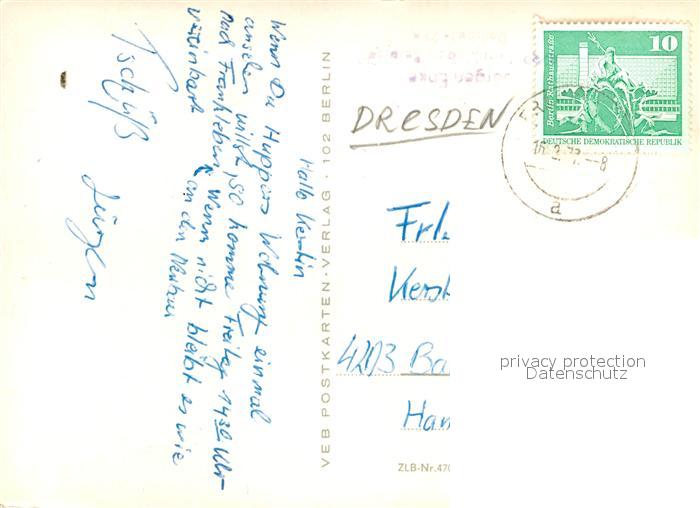 Hallo Kerstin
Wenn Du Huppers Wohnung einmal
ansehen willst, so komme Freitag 14³⁰ Uhr
nach Frankleben. Wenn nicht bleibt es wie
vereinbart an den
Tschüß
Jürgen
VEB POSTKARTEN-VERLAG · 102 BERLIN
DRESDEN
10
Berlin Rathausstraße
DEUTSCHE DEMOKRATISCHE REPUBLIK
a
Frl.
Kerst
4203 Ba
Han
privacy protection
Datenschutz
ZLB-Nr. 470